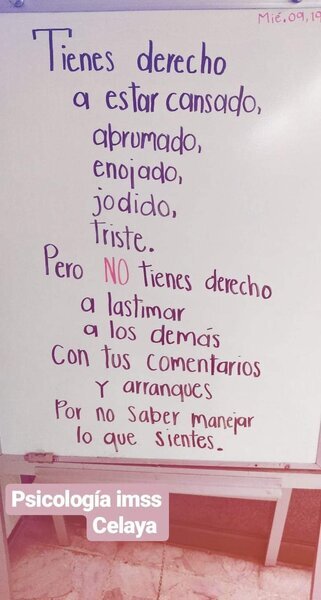 Mié. 09, 19
Tienes derecho
a estar cansado,
abrumado,
enojado,
jodido,
triste.
Pero NO tienes derecho
a lastimar
a los demás
Con tus comentarios
Y arranques
Por no saber manejar
lo que sientes.
Psicología imss
Celaya